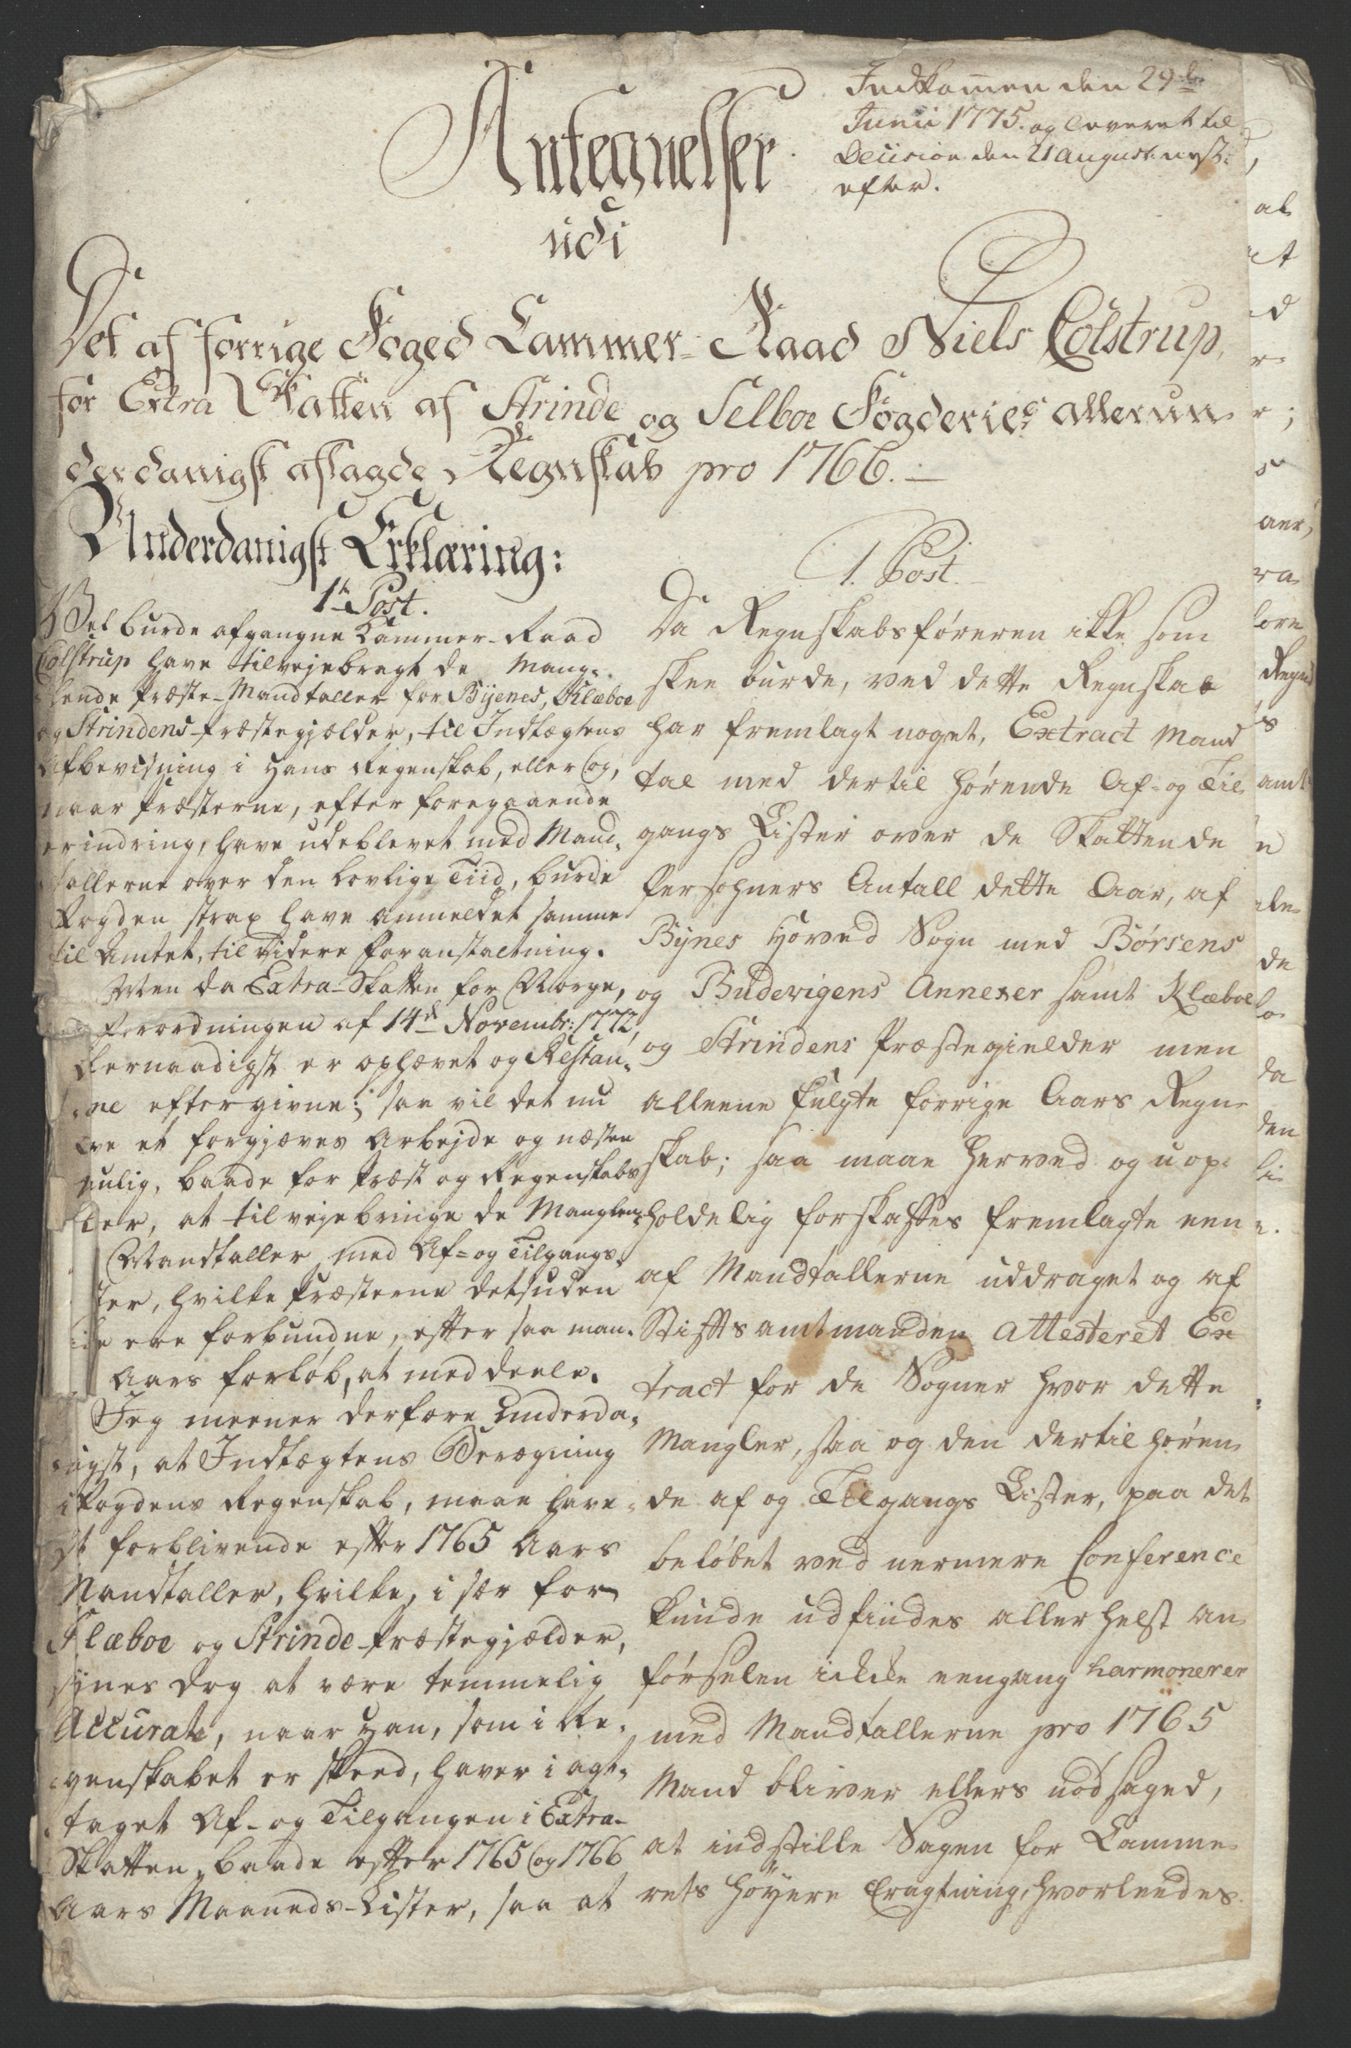 Indkommen den 29de
Junii 1775. og leveret til
Decision den 21 August næst-
efter.
Antegnelser
udi
Det af forrige Foged Cammer-Raad Niels Colstrup,
for Extra Skatten af Strinde og Selboe Fogderies allerun-
derdanigst aflagde Regnskab pro 1766.
Underdanigst Erklæring:
1te Post.
Vel burde afgangne Cammer-Raad
Colstrup have tilvejebragt de Mang-
lende Præste-Mandtaller for Byenes, Klæboe
og Strindens Præstegjælder, til Indtægtens
Afbeviisning i hans Regenskab, eller og,
naar Præsterne, efter foregaaende
erindring, have udeblevet med Mand-
tallerne over den lovlige Tiid, burde
Fogden strax have anmeldet samme
til Amtet, til Videre Foranstaltning.
Men da Extra-Skatten for Norge,
Forordningen af 14d Novembr: 1772,
allernaadigst er ophævet og Restan-
cerne eftergivne; saa vil det nu
være et forgjæves Arbejde og næsten
umulig, baade for Præst og Regenskabs-
fører, at tilvejebringe de Manglen-
de Mandtaller med Af- og Tilgangs-
Lister, hvilke Præsterne desuden
icke ere forbundne, efter saa man-
ge Aars forløb, at meddeele.
Jeg meener derfore underda-
nigst, at Indtægtens Beregning
i Fogdens Regenskab, maae have
sit forblivende efter 1765 Aars
Mandtaller, hvilke, i sær for
Klæboe og Strinde Præstegjælder,
synes dog at være temmelig
Accurate, naar han, som i Re-
genskabet er skeed, haver i agt-
taget Af- og Tilgangen i Extra-
Skatten, baade efter 1765 og 1766
Aars Maaneds-Lister, saa at
1. Post.
Da Regnskabsføreren ikke som
skee burde, ved dette Regnskab
har fremlagt noget, Extract Mand
tal med dertil hørende Af- og Til
gangs Lister over de Skattende
Personers Antall dette Aar, af
Bynes Hoved Sogn med Børsens
og Budevigens Annexer samt Klæboe
og Strindens Præstegielder men
alleene fulgte forrige Aars Regn-
skab; saa maae herved og uop-
holdelig forskaffes fremlagte een
af Mandtallerne uddraget og af
Stiftsamtmanden Attesteret Ex
tract for de Sogner hvor dette
Mangler, saa og den dertil høren-
de af og Tilgangs Lister, paa det
beløbet ved nermere Conference
kunde udfindes allerhelst an-
førselen ikke eengang harmonerer
med Mandtallerne pro 1765
Mand bliver ellers nødsaged,
at indstille Sagen for Camme-
rets høyere Eragtning, hvorleedes